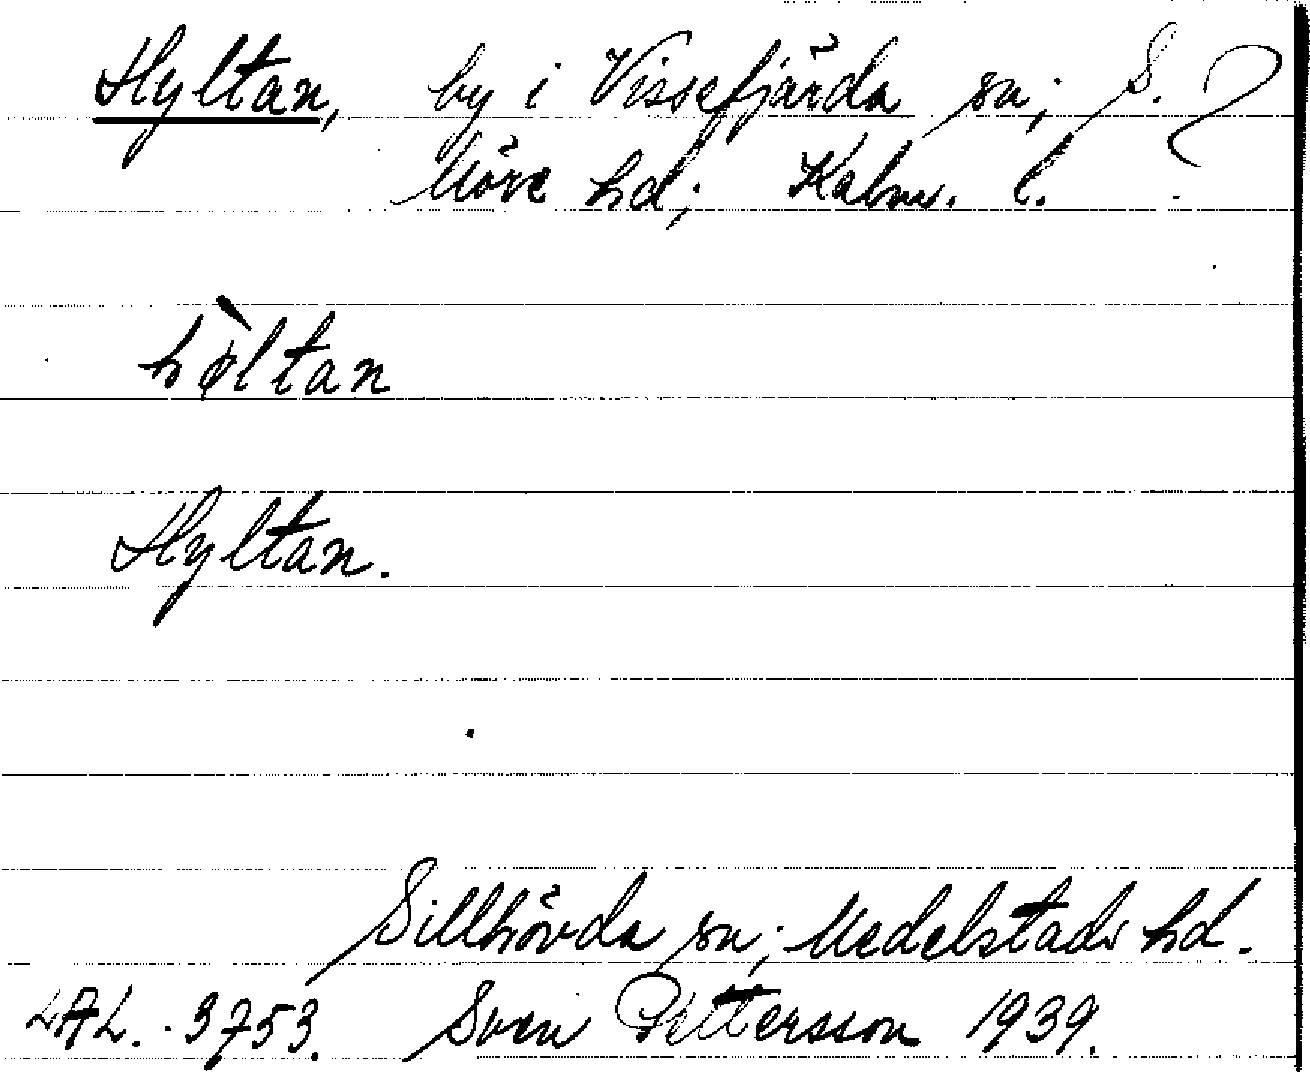 Hyltan, by i Vissefjärda sn; S.
Möre hd; Kalm. l.
hø̀ltan
Hyltan.
Sillhövda sn; Medelstads hd.
LAL. 3753. Sven Pettersson 1939.